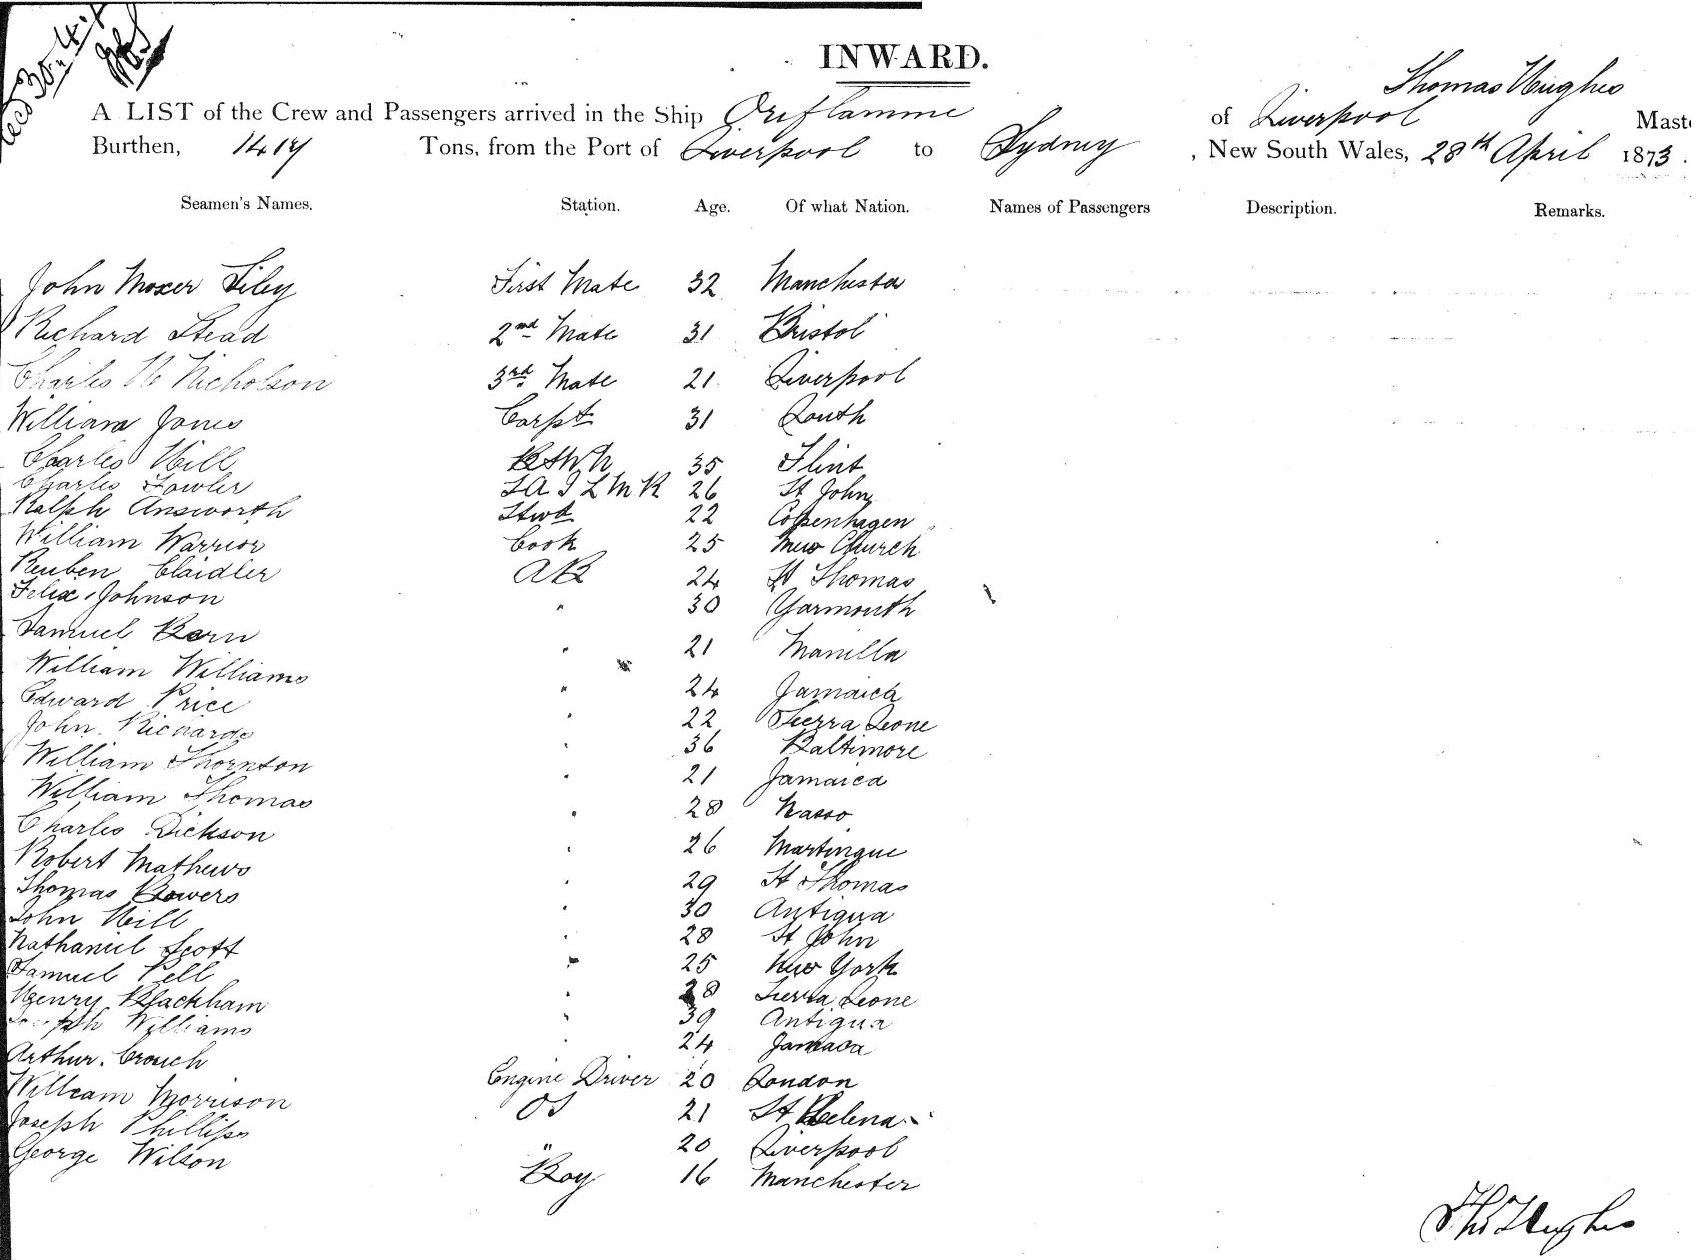 Recd 30.4.
INWARD.
Thomas Hughes
A LIST of the Crew and Passengers arrived in the Ship Oriflamme of Liverpool Maste
Burthen, 1417 Tons, from the Port of Liverpool to Sydney , New South Wales, 28th April 1873.
Seamen's Names. Station. Age. Of what Nation. Names of Passengers Description. Remarks.
John Moxer Tiley First Mate 32 Manchester
Richard Stead 2nd Mate 31 Bristol
Charles H Nicholson 3rd Mate 21 Liverpool
William Jones Carpt 31 Louth
Charles Hill 35 Flint
Charles Fowler S A I L M K 26 St John
Ralph Answorth Stwd 22 Copenhagen
William Warrior Cook 25 New Church
Reuben Claidler AB 24 St Thomas
Felix Johnson " 30 Yarmouth
Samuel Bern " 21 Manilla
William Williams " 24 Jamaica
Edward Price " 22 Sierra Leone
John Richards " 36 Baltimore
William Thornton " 21 Jamaica
William Thomas " 28 Nasso
Charles Dickson " 26 Martinque
Robert Mathews " 29 St Thomas
Thomas Bowers " 30 Antigua
John Hill " 28 St John
Nathaniel Scott " 25 New York
Samuel Pell " 28 Sierra Leone
Henry Blackham " 39 Antigua
Joseph Williams " 24 Jamaca
Arthur Crouch Engine Driver 20 London
William Morrison OS 21 St Helena
Joseph Phillips " 20 Liverpool
George Wilson Boy 16 Manchester
Thos Hughes